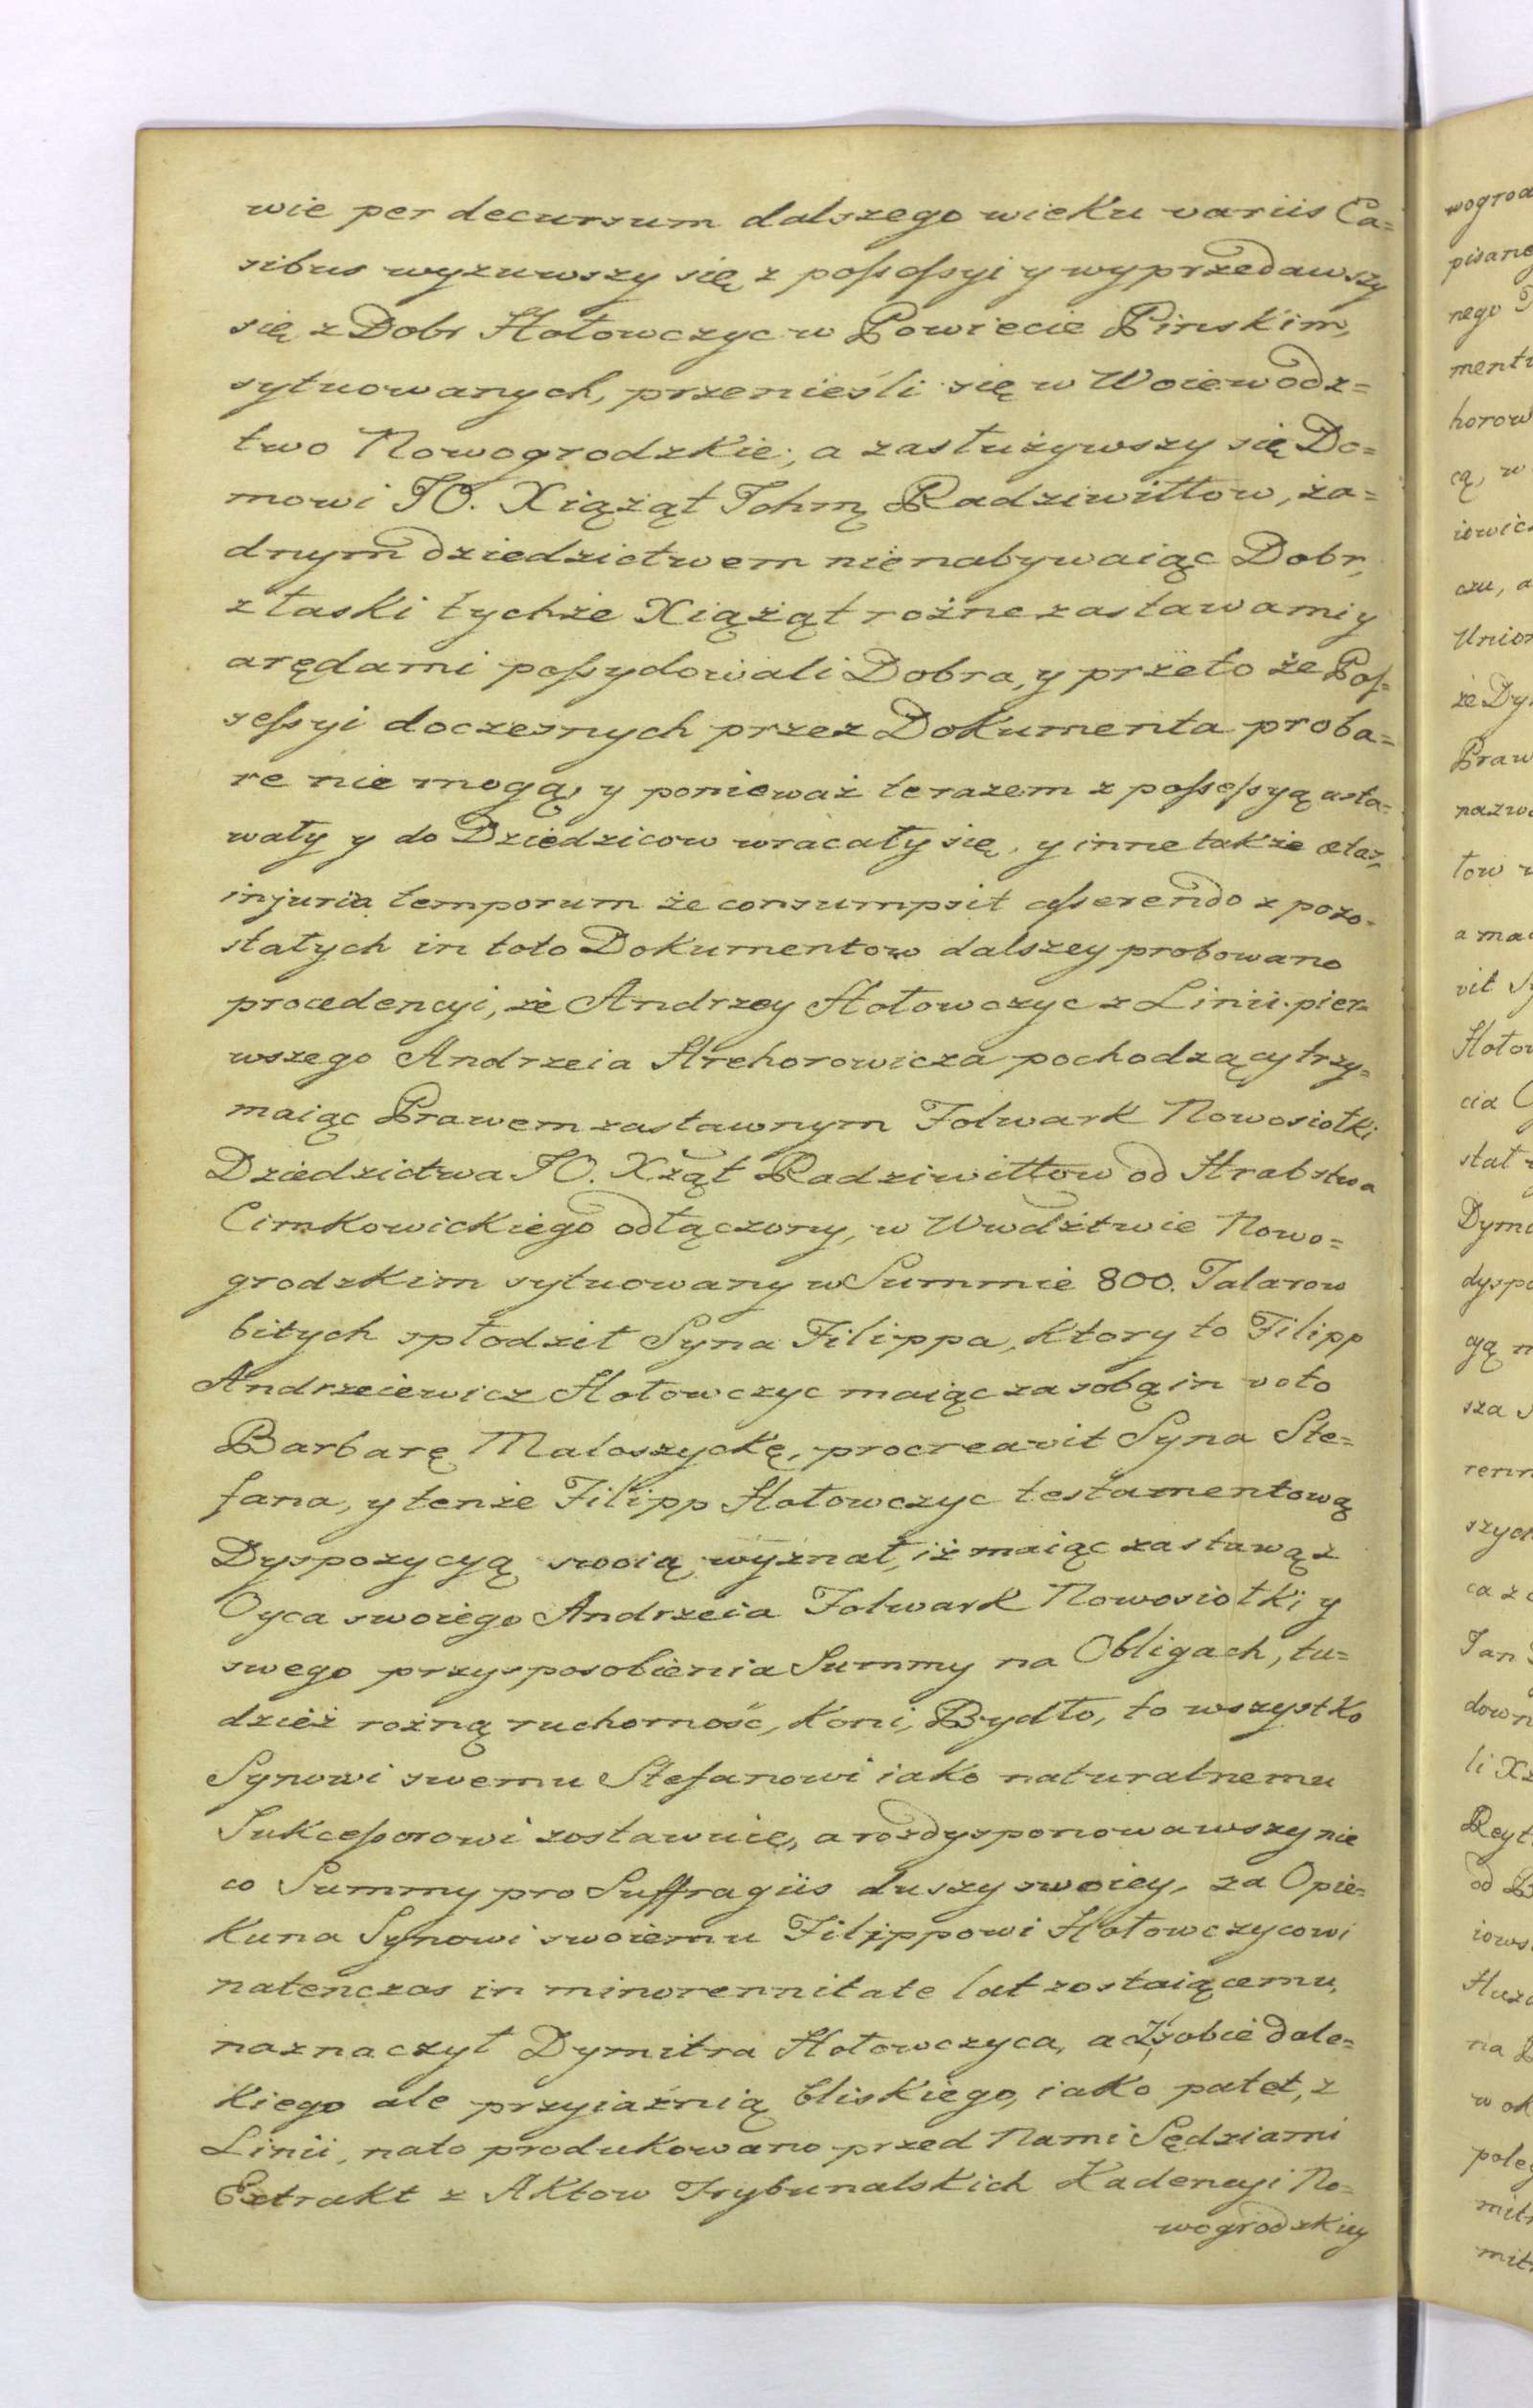 wie per decursum dalszego wieku variis Ca=
sibus wyzuwszy się z possessyi y wyprzedawszy
się z Dobr Hołowczyc w Powiecie Pinskim,
sytuowanych, przenieśli się w Woiewodz=
two Nowogrodzkie, a zasłużywszy się Do=
mowi JO. Xiążąt Ichmę Radziwiłłow, ża=
dnym dziedzictwem nienabywaiąc Dobr,
z łaski tychże Xiążąt rożne zastawami y
arędami possydowali Dobra, y przeto że Pos=
sessyi doczesnych przez Dokumenta proba=
re nie mogą, y ponieważ te razem z possessyą
wały y do Dziedzicow wracały się, y inne także ætas,
injuria temporum że consumpsit asserendo z pozo=
stałych in toto Dokumentow dalszey probowano
procedencyi, że Andrzey Hołowczyc z Linii pier=
wszego Andrzeia Hrehorowicza pochodzący trzy=
maiąc Prawem zastawnym Folwark Nowosiołki
Dziedzictwa JO. Xżąt Radziwiłłow od Hrabstwa
Cimkowickiego odłączony, w Wwdżtwie Nowo=
grodzkim sytuowany w Summie 800. Talarow
bitych spłodził Syna Filippa, ktory to Filipp
Andrzeiewicz Hołowczyc maiąc za sobą in voto
Barbarę Małoszyckę, procreavit Syna Ste=
fana, y tenże Filipp Hołowczyc testamentową
Dyspozycyą swoią wyznał, iż maiąc zastawą z
Oyca swoiego Andrzeia Folwark Nowosiołki y
swego przysposobienia Summy na Obligach, tu=
dzież rożną ruchomość, Koni, Bydło, to wszystko
Synowi swemu Stefanowi iako naturalnemu
Sukcessorowi zostawuie, a rozdysponowawszy nie
co Summy pro Suffragiis duszy swoiey, za Opie=
kuna Synowi swoiemu Filippowi Hołowczycowi
natenczas in minorennitate lat zostaiącemu,
naznaczył Dymitra Hołowczyca, acz sobie dale=
kiego ale przyiaźnią bliskiego, iako patet, z
Linii, nato produkowano przed Nami Sędziami
Extrakt z Aktow Trybunalskich Kadencyi No=
wogrodzkiey
wogrod
pisane
nego
ment
horow
cą, w
iewic
czu, a
Union
że Dy
Praw
nazw
tow
a ma
vit
Hoło
cia
stat
Dym
dysp
cyą n
sza
renn
szych
ca z
Jan
down
li Xż
Reyt
od B
iows
Huz
na
w ok
pole
mit
mit